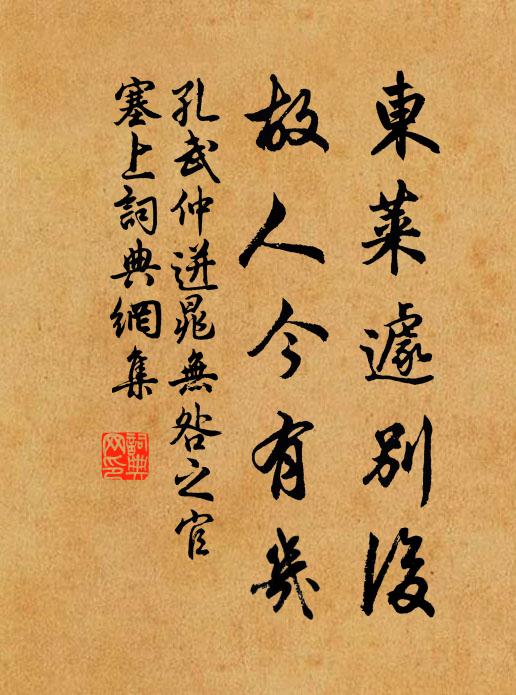 東萊遽別後
故人今有幾
孔武仲迸晁無咎之官
塞上詞典網集
詞典
网印